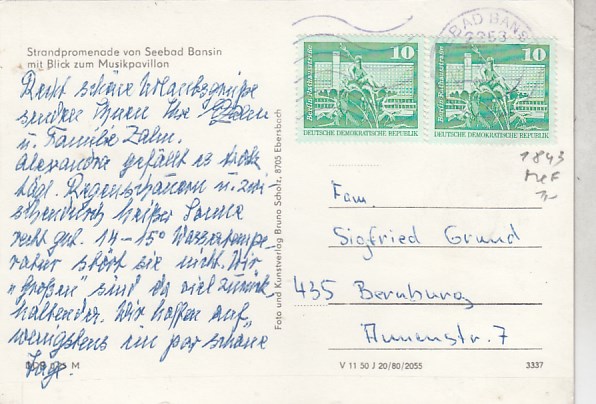 Strandpromenade von Seebad Bansin
mit Blick zum Musikpavillon
Recht schöne Urlaubsgrüße
senden Ihnen Ihr
u. Familie Zahn.
Alexandra gefällt es trotz
tägl. Regenschauern u. zwi-
schendurch heißer Sonne
recht gut. 14-15° Wassertempe-
ratur stört sie nicht. Wir
"Großen" sind da viel zurück-
haltender. Wir hoffen auf
wenigstens ein paar schöne
Tage.
M
Foto und Kunstverlag Bruno Scholz, 8705 Ebersbach
BAD BANS
Berlin, Rathausstraße
10
DEUTSCHE DEMOKRATISCHE REPUBLIK
Berlin, Rathausstraße
10
DEUTSCHE DEMOKRATISCHE REPUBLIK
1843
MeF
Fam.
Siegfried Grund
435 Bernburg
Annenstr. 7
V 11 50 J 20/80/2055
3337